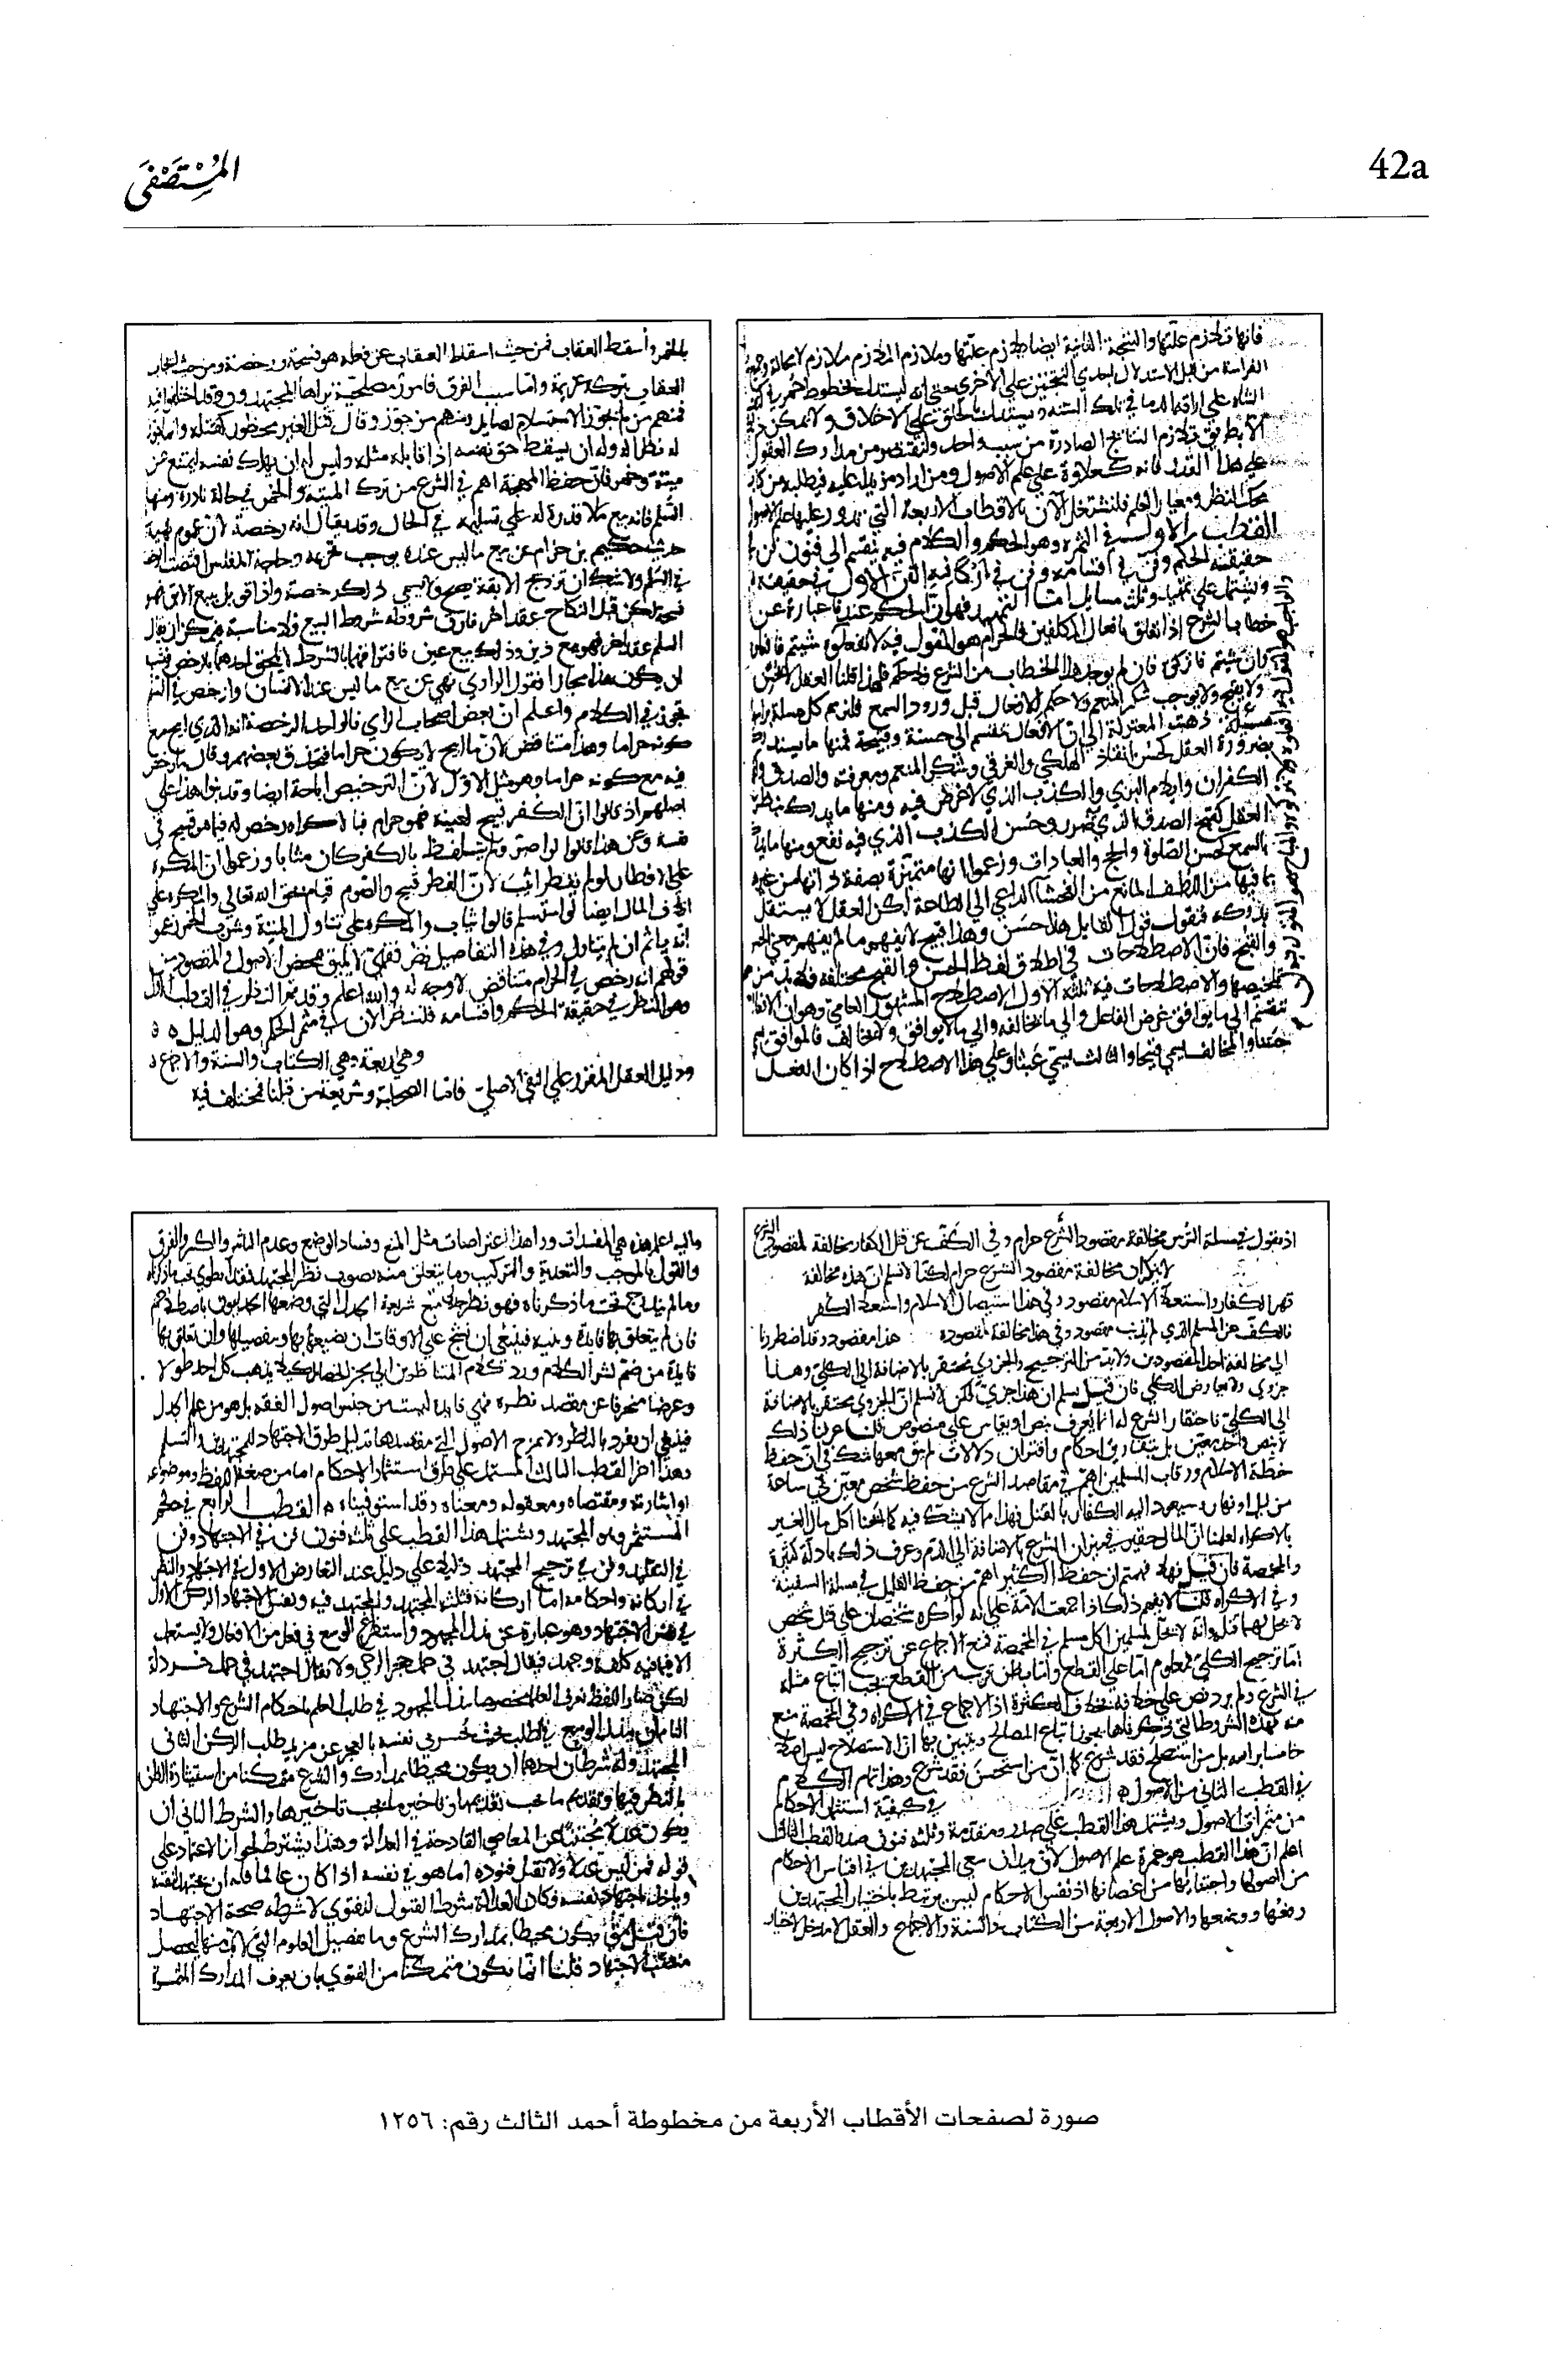 المُسْتَصْفَى
42a
فانها تلازم علتها والنتيجة الثانية ايضا تلازم علتها وملازم الملازم ملازم لا محالة وجميع
الفراسة من قبيل الاستدلال باحدي النتيجتين على الاخرى حتى انه ليستدل بخطوط حمر
الشاه على اراقة الدما في تلك السنة ويستدل بالخلق على الاخلاق ولا يمكن ذلك
الا بطريق تلازم النتائج الصادرة من سبب واحد ولنقتصر من مدارك العقول
على هذا القدر فانه كعلاوة على علم الاصول ومن اراد مزيدا عليه فيطلبه من كتاب
محك النظر ومعيار العلم فلنشتغل الآن بالاقطاب الاربعة التي يدور عليها علم الاصول
القطب الاول في الثمرة وهو الحكم والكلام فيه ينقسم الى فنون فن في
حقيقة الحكم وفن في اقسامه وفن في اركانه الفن الاول في حقيقته
ويشتمل على تمهيد وثلث مسايل اما التمهيد فهو ان الحكم عندنا عبارة عن
خطاب الشرع اذا تعلق بافعال المكلفين فالحرام هو المقول فيه لا تفعلوه
فان لم يوجد هذا الخطاب من الشرع فلا حكم فلهذا قلنا العقل لا يحسن
ولا يقبح ولا يوجب شكر المنعم ولا حكم للافعال قبل ورود السمع فلنرسم كل مسلة براسها
مسئلة ذهبت المعتزلة الى ان الافعال تنقسم الى حسنة وقبيحة فمنها ما يدرك
بضرورة العقل كحسن انقاذ الهلكى والغرقى وشكر المنعم ومعرفة والصدق وكقبح
الكفران وايلام البري والكذب الذي لا غرض فيه ومنها ما يدرك بنظر
العقل كقبح الصدق الذي فيه ضرر وحسن الكذب الذي فيه نفع ومنها ما يدرك
بالسمع كحسن الصلوة والحج والعبادات وزعموا انها متميزة بصفة ذاتها من غيره
بما فيها من اللطف المانع من الفحشا الداعي الى الطاعة لكن العقل لا يستقل
بدركه فنقول قول القايل هذا حسن وهذا قبيح لا يفهم ما لم يفهم معنى الحسن
والقبح فان الاصطلاحات في اطلاق لفظ الحسن والقبح مختلفة فلا بد من
تلخيصها والاصطلاحات فيه ثلثة الاول الاصطلاح المشهور العامي وهو ان الافعال
تنقسم الى ما يوافق غرض الفاعل والى ما يخالفه والى ما لا يوافق ولا يخالف فالموافق يسمى
حسنا والمخالف يسمى قبيحا والثالث يسمى عبثا وعلى هذا الاصطلاح اذا كان الفعل
بالخمر واسقط العقاب فمن حيث اسقط العقاب عن فعله هو فسحة ورخصة ومن حيث
العقاب بتركه عزيمة واما سبب الفرق فامور مصلحية يراها المجتهد وقد اختلفوا فيه
فمنهم من لم يجوز الاستسلام للصايل ومنهم من جوز وقال قتل الغير محظور كقتله وانما جوز
له نظرا له وله ان يسقط حق نفسه اذا قابله مثله وليس له ان يهلك نفسه ليمتنع عن
ميتة وخمر فان حفظ المهجة اهم في الشرع من ترك الميتة والخمر في حالة نادرة ومنها
السلم فانه بيع ما لا قدرة له على تسليمه في الحال وقد يقال انه رخصة لان عموم نهيه
حديث حكيم بن حزام عن بيع ما ليس عنده يوجب تحريمه وحاجة المفلس اقتضت الرخصة
في السلم ولا شك ان تزويج الابقة يصح ولا يسمى ذلك رخصة واذا قوبل ببيع الآبق فهو
فسحة لكن قيل النكاح عقد آخر فارق شروطه شروط البيع فلا مناسبة فيمكن ان يقال
السلم عقد آخر فهو بيع دين وذلك بيع عين فافتراقهما بالشرط لا يلحق احدهما بالرخص
ان يكون هذا مجازا فقول الراوي نهى عن بيع ما ليس عند الانسان وارخص في السلم
تجوز في الكلام واعلم ان بعض اصحاب الراي قالوا حد الرخصة انه الذي ابيح مع
كونه حراما وهذا متناقض لان ما ابيح لا يكون حراما فحذق بعضهم وقال ما رخص
فيه مع كونه حراما وهو مثل الاول لان الترخيص اباحة ايضا وقد بنوا هذا على
اصلهم اذ قالوا ان الكفر قبيح لعينه فهو حرام فبالاكراه رخص له فيما هو قبيح في
نفسه وعن هذا قالوا لو اصر ولم يتلفظ بالكفر كان مثابا وزعموا ان المكره
على الافطار لو لم يفطر اثيب لان الفطر قبيح والصوم قيام بحق الله تعالى والمكره على
اتلاف المال ايضا لو استسلم قالوا يثاب والمكره على تناول الميتة وشرب الخمر زعموا
انه ياثم ان لم يتناول وفي هذه التفاصيل نظر فقهي لا يليق بمحض الاصول والمقصود ان
قولهم انه رخص في الحرام متناقض لا وجه له والله اعلم وقد تم النظر في القطب الاول
وهو النظر في حقيقة الحكم واقسامه فلننظر الآن في مثمر الحكم وهو الدليل ه ه
وهي اربعة وهي الكتاب والسنة والاجماع
ودليل العقل المقرر على النفي الاصلي فاما قول الصحابة وشريعة من قبلنا فمختلف فيه
اذ نقول في مسلة الترس مخالفة مقصود الشرع حرام وفي الكف عن قتل الكفار مخالفة لمقصود الشرع
لا ينكر ان مخالفة مقصود الشرع حرام لكنا لا نسلم ان هذه مخالفة
قهر الكفار واستعلا الاسلام مقصود وفي هذا استيصال الاسلام واستعلا الكفر
فالكف عن المسلم الذي لم يذنب مقصود وفي هذا مخالفة لمقصوده هذا مقصود وقد اضطررنا
الى مخالفة احد المقصودين ولا بد من الترجيح والجزوي محتقر بالاضافة الى الكلي وهذا
جزوي ولا يعارض الكلي فان قيل مسلم ان هذا جزئي لكن لا نسلم ان الجزوي محتقر بالاضافة
الى الكلي فاحتقار الشرع له انما يعرف بنص او بقياس على منصوص قلنا عرفنا ذلك
لا بنص واحد معين بل بتفاريق احكام واقتران دلالات لم يبق معها شك في ان حفظ
خطة الاسلام ورقاب المسلمين اهم في مقاصد الشرع من حفظ شخص معين في ساعة
من ليل او نهار وسيعود اليه الكفار بالقتل فهذا ما لا يشك فيه كما ابحنا اكل مال الغير
بالاكراه لعلمنا ان المال حقير في ميزان الشرع بالاضافة الى الدم وعرف ذلك بادلة كثيرة
فان قيل فهلا فهمتم ان حفظ الكثير اهم من حفظ القليل في مسلة السفينة
وفي الاكراه والمخمصة قلنا لم نفهم ذلك اذ اجمعت الامة على انه لو اكره شخصان على قتل شخص
لا يحل لهما قتله وانه لا يحل لمسلمين اكل مسلم في المخمصة فمنع الاجماع عن ترجيح الكثرة
اما ترجيح الكلي فمعلوم اما على القطع واما بظن قريب من القطع يجب اتباع مثله
في الشرع ولم يرد نص على خلافه بخلاف الكثرة اذ الاجماع في الاكراه وفي المخمصة منع
منه فبهذه الشروط التي ذكرناها يجوز اتباع المصالح ويتبين بها ان الاستصلاح ليس اصلا
خامسا براسه بل من استصلح فقد شرع كما ان من استحسن فقد شرع وهذا تمام الكلام
في القطب الثاني من الاصول ه
في كيفية استثمار الاحكام
من مثمرات الاصول ويشتمل هذا القطب على صدر ومقدمة وثلثة فنون صدر القطب الثالث
اعلم ان هذا القطب هو عمدة علم الاصول لان ميدان سعي المجتهدين في اقتباس الاحكام
من اصولها واجتنائها من اغصانها اذ نفس الاحكام ليس يرتبط باختيار المجتهدين
رفعها ووضعها والاصول الاربعة من الكتاب والسنة والاجماع والعقل لا مدخل لاختيار
هذه هي المفسدات ورا هذا اعتراضات مثل المنع وفساد الوضع وعدم التاثير والكسر والفرق
والقول بالموجب والتعدية والتركيب وما يتعلق منه بتصويب نظر المجتهد فقد انطوى تحت ما ذكرناه
وما لم يندرج تحت ما ذكرناه فهو نظر جدلي يتبع شريعة الجدل التي وضعها الجدليون باصطلاحهم
فان لم يتعلق بها فايدة دينية فينبغي ان نشح على الاوقات ان نضيعها بها وبتفصيلها وان تعلق بها
فايدة من ضم نشر الكلام ورد كلام المتناظرين الى مجرى الخصام كيلا يذهب كل احد طولا
وعرضا منحرفا عن مقصد نظره فهي فايدة ليست من جنس اصول الفقه بل هو من علم الجدل
فينبغي ان يفرد بالنظر ولا يمزج بالاصول التي مقصدها تذليل طرق الاجتهاد للمجتهدين والسلم
وهذا اخر القطب الثالث المشتمل على طرق استثمار الاحكام اما من صيغة اللفظ وموضوعه
او اشارته ومقتضاه ومعقوله ومعناه وقد استوفيناه ه القطب الرابع في حكم
المستثمر وهو المجتهد ويشتمل هذا القطب على ثلثة فنون فن في الاجتهاد وفن
في التقليد وفن في ترجيح المجتهد دليلا على دليل عند التعارض الاول في الاجتهاد والنظر
في اركانه واحكامه اما اركانه فثلثة المجتهد والمجتهد فيه ونفس الاجتهاد الركن الاول
في نفس الاجتهاد وهو عبارة عن بذل المجهود واستفراغ الوسع في فعل من الافعال ولا يستعمل
الا فيما فيه كلفة وجهد فيقال اجتهد في حمل حجر الرحى ولا يقال اجتهد في حمل خردلة
لكن صار اللفظ في عرف العلما مخصوصا ببذل المجهود في طلب العلم باحكام الشرع والاجتهاد
التام ان يبذل الوسع في الطلب بحيث يحس من نفسه بالعجز عن مزيد طلب الركن الثاني
المجتهد وله شرطان احدهما ان يكون محيطا بمدارك الشرع متمكنا من استثارة الظن
بالنظر فيها وتقديم ما يجب تقديمه وتاخير ما يجب تاخيره والشرط الثاني ان
يكون عدلا مجتنبا عن المعاصي القادحة في العدالة وهذا يشترط لجواز الاعتماد على
قوله فمن ليس عدلا لا تقبل فتواه اما هو في نفسه اذا كان عالما فله ان يجتهد لنفسه
وياخذ باجتهاد نفسه فكان العدالة شرط القبول للفتوى لا شرط صحة الاجتهاد
فان قيل متى يكون محيطا بمدارك الشرع وما تفصيل العلوم التي لا بد منها لتحصيل
منصب الاجتهاد قلنا انما يكون متمكنا من الفتوى بان يعرف المدارك المثمرة
صورة لصفحات الأقطاب الأربعة من مخطوطة أحمد الثالث رقم: ١٢٥٦